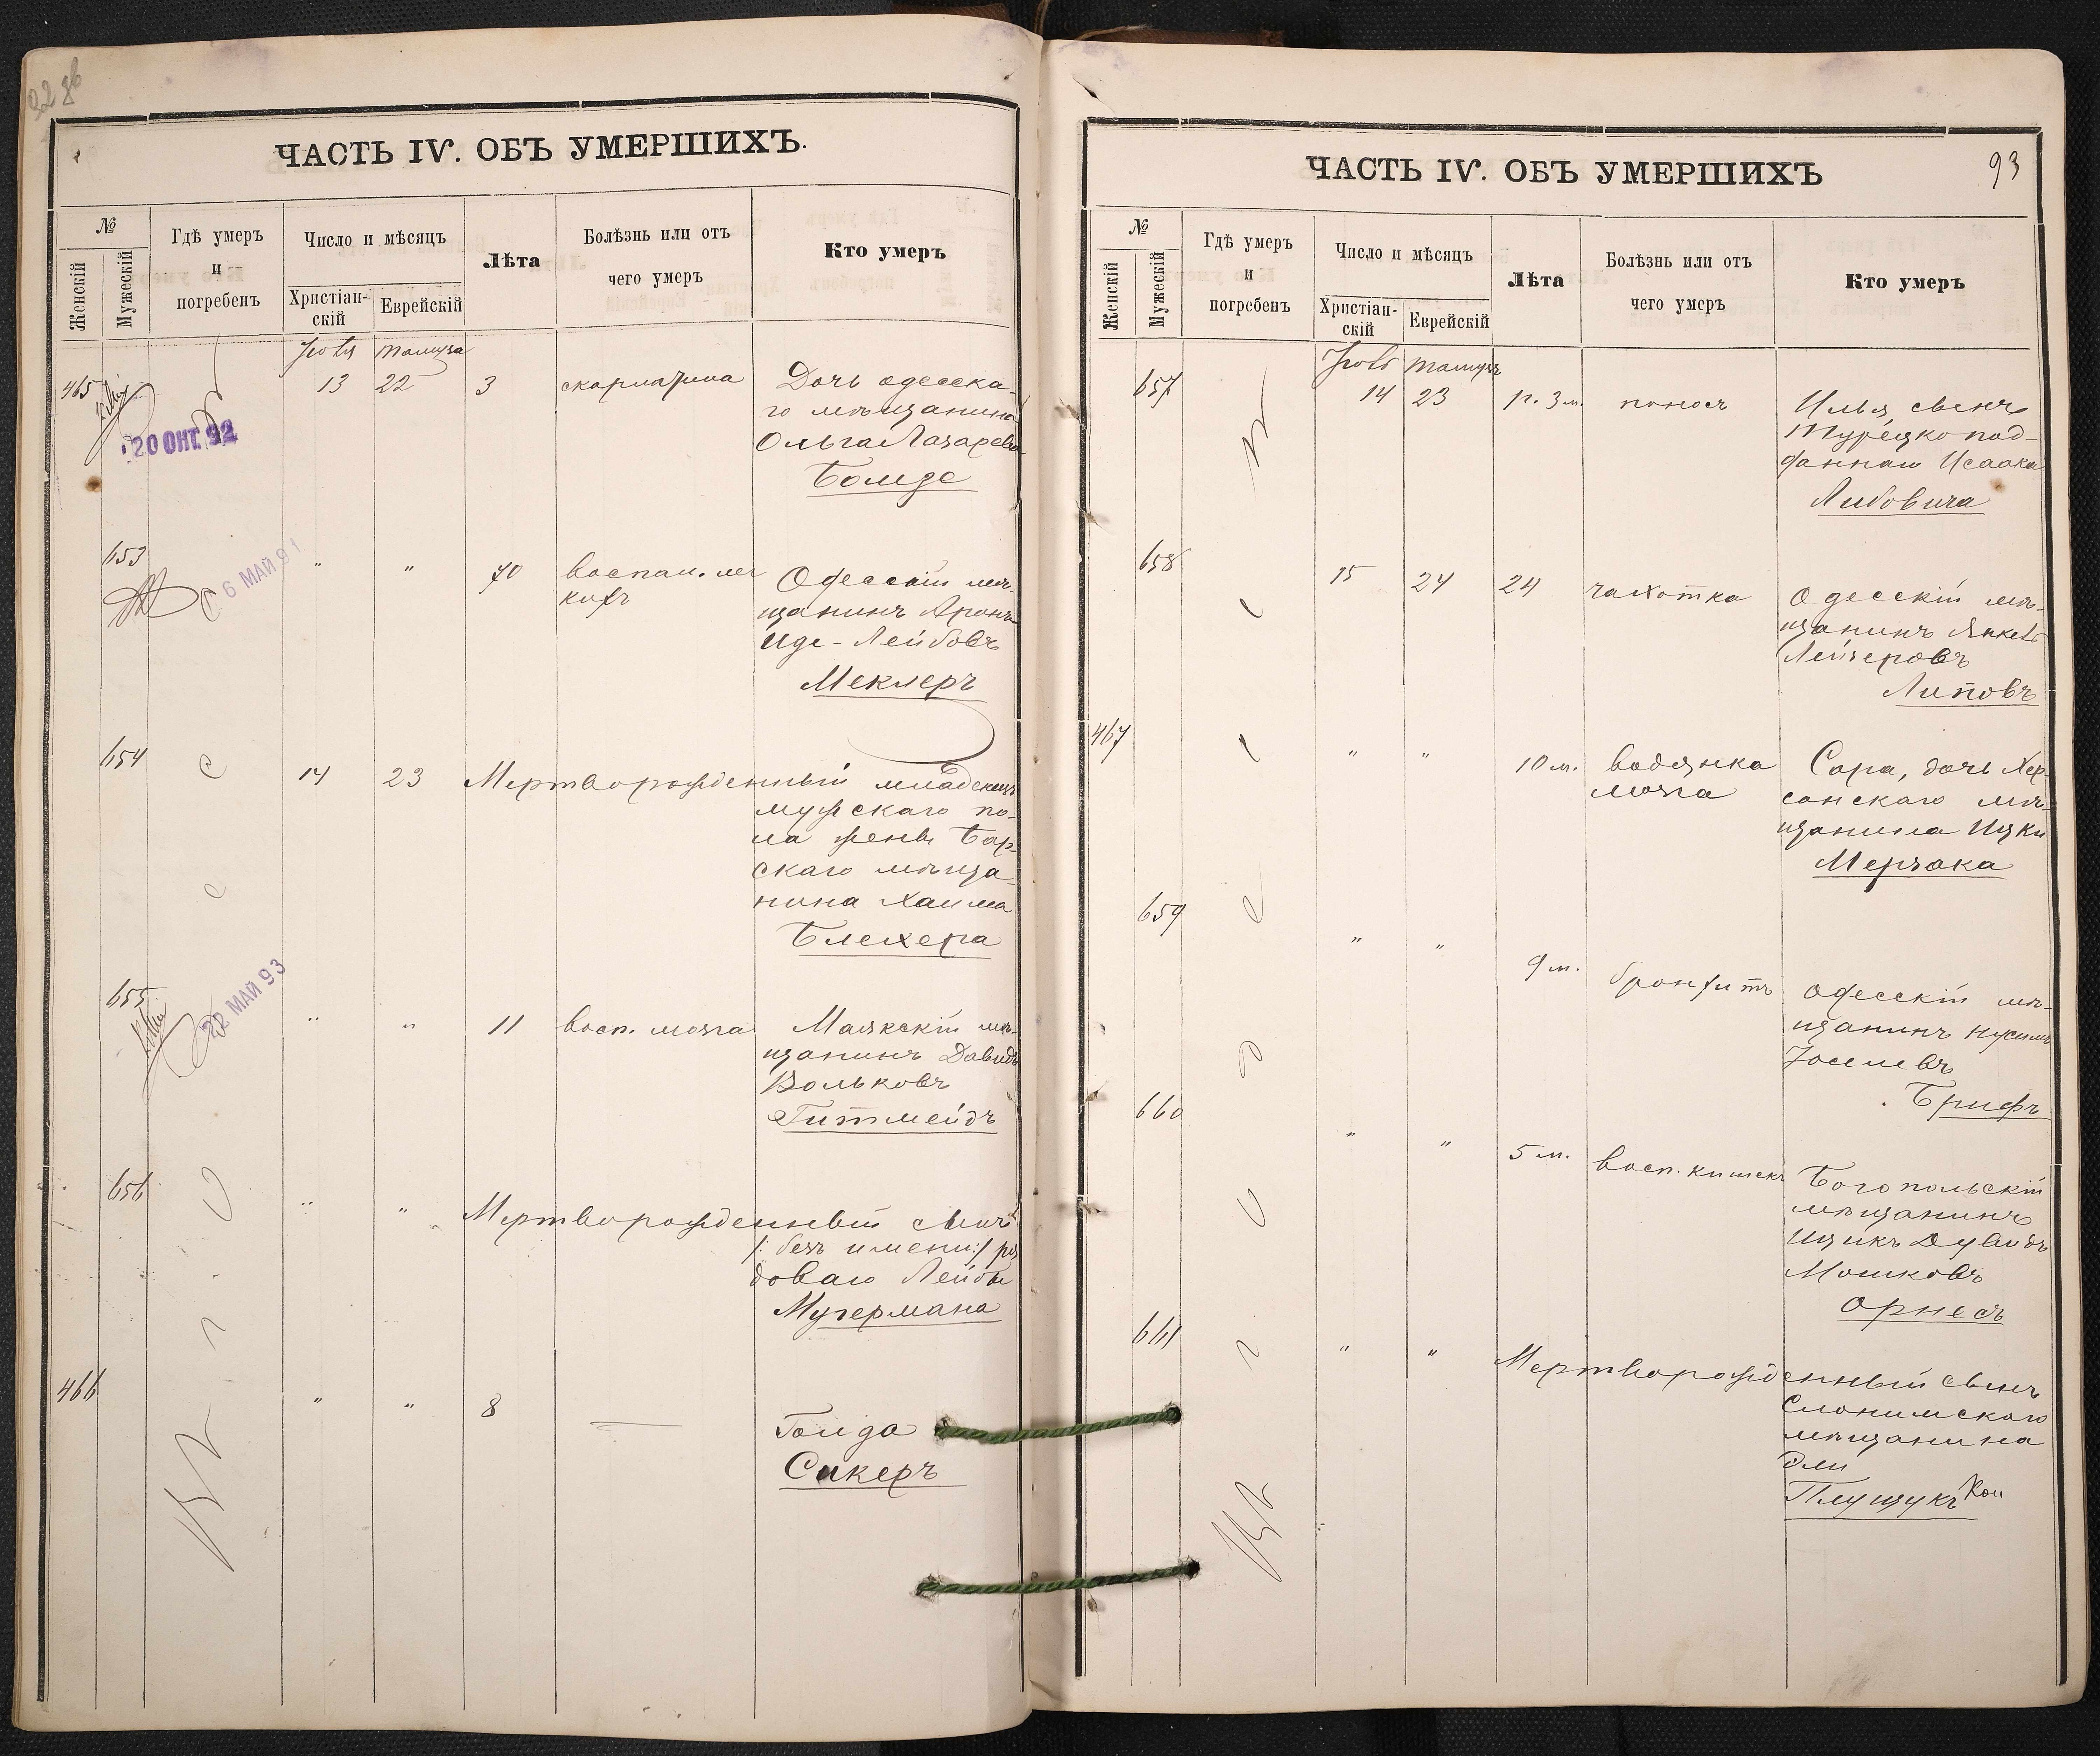 ЧАСТЬ IV. ОБЪ УМЕРШИХЪ.
№
Женскій
Мужескій
Гдѣ умеръ
и
погребенъ
Число и мѣсяцъ
Христіан-
скій
Еврейскій
Лѣта
Болѣзнь или отъ
чего умеръ
Кто умеръ
Іюля Тамуза
465 13 22 3 скарлатина Дочь одесска-
го мѣщанина
Ольга Лазарева
20 ОКТ. 92
653 " " 70 воспал. лег
кихъ
Одесскій мѣ-
щанинъ Аронъ
Иде-Лейбовъ
Меклеръ
6 МАЙ 91
654 14 23 Мертворожденный младенецъ
мужскаго по-
ла жены Бар-
скаго мѣща-
нина Хаима
Блехера
655 " " 11 восп. мозга Маякскій мѣ-
щанинъ Давидъ
Вольковъ
Гитмейдъ
22 МАЙ 93
656 " " Мертворожденный сынъ
/: безъ имени :/ ря
доваго Лейбы
Мучермана
466 " " 8 — Голда
Сикеръ
ЧАСТЬ IV. ОБЪ УМЕРШИХЪ
93
№
Женскій
Мужескій
Гдѣ умеръ
и
погребенъ
Число и мѣсяцъ
Христіан-
скій
Еврейскій
Лѣта
Болѣзнь или отъ
чего умеръ
Кто умеръ
657 14 23 1 г. 3 м. поносъ Илья, сынъ
Турецко под-
даннаго Исаака
Либовича
658 15 24 24 чахотка Одесскій мѣ-
щанинъ Янкель
Лейзеровъ
Липовъ
467 " " 10 м. водянка
мозга
Сара, дочь Хер-
сонскаго мѣ-
щанина Ицки
Мерзака
659 " " 9 м. бронхитъ Одесскій мѣ-
щанинъ Нусимъ
Іоселевъ
Брифъ
660 " " 5 м. восп. кишекъ Богопольскій
мѣщанинъ
Ицикъ Дувидъ
Мошковъ
Орнесъ
661 " " Мертворожденный сынъ
Слонимскаго
мѣщанина
Эли
Плущукъ